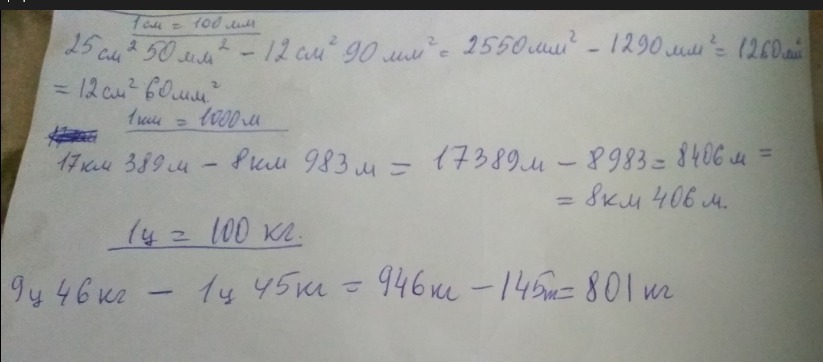 1см = 100мм
25см² 50мм² - 12см² 90мм² = 2550мм² - 1290мм² = 1260мм²
= 12см² 60мм²
1км = 1000м
17км 389м - 8км 983м = 17389м - 8983 = 8406м =
= 8км 406м.
1ц = 100 кг.
9ц 46кг - 1ц 45кг = 946кг - 145т = 801кг